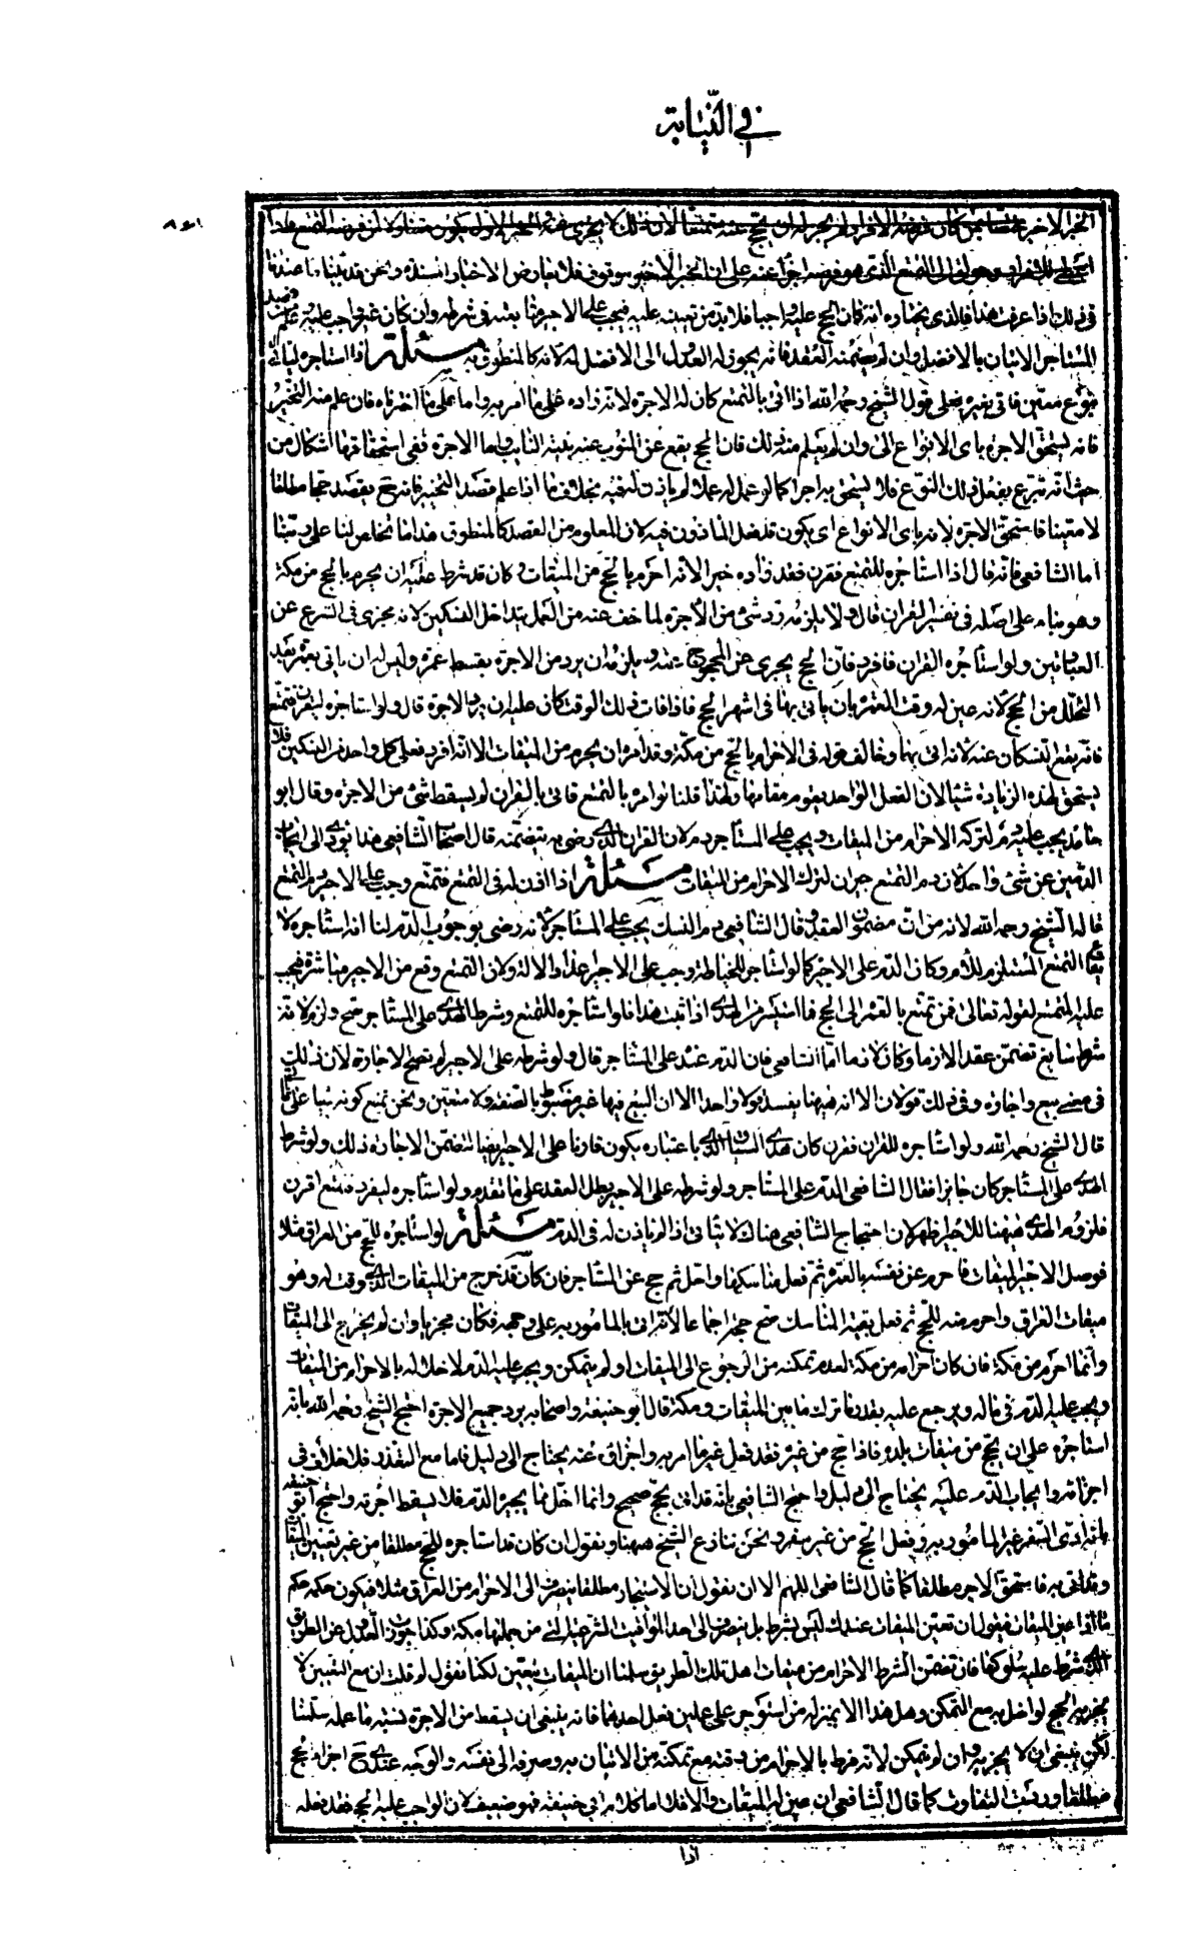 في النيابة
٨٤١
الخبر الاخير كان فرضه الافراد لم يجز له ان يحج عنه متمتعا لان ذلك لا يجزي عنه
الذي هو فرضه اجزأ عنه على ان الخبر الاخير موقوف فلا يعارض الاخبار المسندة ونحن قد بينا ما عندنا
في ذلك اذا عرفت هذا فالذي يختاره انه كان الحج عليه واجبا فلا بد من تعيينه عليه فيجب على الاجير ما يعتبر في شرطه وان كان غير واجب عليه وعلم قصد
المستاجر الاتيان بالافضل وان لم يضمنه العقد فانه يجوز له العدول الى الافضل لانه كالمنطوق به مسئلة اذا استاجره لياتي
بنوع معين فاتى بغيره فعلى قول الشيخ رحمه الله اذا اتى بالتمتع كان له الاجرة لانه زاده على ما امر به واما على ما اخترناه فان علم منه التخيير
فانه يستحق الاجرة باى الانواع اتى وان لم يعلم منه ذلك فان الحج يقع عن المنوب عنه بنية النايب واما الاجرة ففى استحقاقها اشكال من
حيث انه تبرع بفعل ذلك النوع فلا يستحق به اجرا كما لو عمل له عملا لم ياذن له فيه بخلاف ما اذا علم قصد التخيير فانه ح يقصد حجا مطلقا
لا معينا فاستحق الاجرة لانه باى الانواع اتى يكون قد فعل الماذون فيه لان المعلوم من القصد كالمنطوق هذا ما تخاص لنا على مذهبنا
اما الشافعي فانه قال اذا استاجره للتمتع فقرن فقد زاده خيرا لانه احرم بالحج من الميقات وكان قد شرط عليه ان يحرم بالحج من مكة
وهو بناء على اصله في تفسير القران قال ولا يلزمه رد شئ من الاجرة لما خف عنه من العمل بتداخل النسكين لانه مجزى في الشرع عن
العبادتين ولو استاجره للقران فافرد فان الحج يجزى عن المحجوج عنه ويلزمه ان يرد من الاجرة بقسط عمرة وليس له ان ياتى بعمرة بعد
التحلل من الحج لانه عين له وقت العمرة بان ياتى بها في اشهر الحج فاذا فات ذلك الوقت كان عليه ان يرد الاجرة قال ولو استاجره ليقرن فتمتع
فانه يقع النسكان عنه لانه اتى بهما وخالف قوله في الاحرام بالحج من مكة وقد امره ان يحرم من الميقات الا انه افرد فعلى كل واحد من النسكين فلا
يستحق لهذه الزيادة شيئا لان الفعل الواحد يقوم مقامها ولهذا قلنا لو امره بالتمتع فاتى بالقران لم يسقط شئ من الاجرة وقال ابو
حامد يجب عليه دم لتركه الاحرام من الميقات ويجب على المستاجر دم لان القران الذى رضى به يتضمنه قال اصحاب الشافعي هذا يؤدى الى ايجاب
الدمين عن شئ واحد لان دم التمتع جبران لترك الاحرام من الميقات مسئلة اذا اذن له في التمتع فتمتع وجب على الاجير دم التمتع
قاله الشيخ رحمه الله لانه من مضمون العقد وقال الشافعي دم النسك يجب على المستاجر لانه رضى بوجوب الدم لنا انه استاجره لا
يقاع التمتع المستلزم للدم وكان الدم على الاجير كما لو استاجر للخياطة وجب على الاجير عمله والالة ولان التمتع وقع من الاجير مباشرة فيجب
عليه المتمتع لقوله تعالى فمن تمتع بالعمرة الى الحج فما استيسر من الهدى اذا ثبت هذا فلو استاجره للتمتع وشرط الهدى على المستاجر صح ولزم لانه
شرط سايغ تضمن عقدا لازما وكان لازما اما الشافعي فان الدم عنده على المستاجر قال ولو شرطه على الاجير لم تصح الاجارة لان ذلك
في معنى بيع واجارة وفى ذلك قولان الا انه هيهنا يفسد قولا واحدا لان البيع فيها غير مضبوط بالصفة ولا متعين ونحن نمنع كونه بيعا على ما
قال الشيخ رحمه الله ولو استاجره للقران فقرن كان هدى السياق الذى باعتباره يكون قارنا على الاجير ايضا لتضمن الاجارة ذلك ولو شرط
الهدى على المستاجر كان جايزا فقال الشافعي الدم على المستاجر ولو شرطه على الاجير بطل العقد على ما تقدم ولو استاجره ليفرد فتمتع او قرن
فلزوم الهدى هيهنا للاجير اظهر لان احتجاج الشافعي هناك لا يتاتى اذ لم ياذن له في الدم مسئلة لو استاجره للحج من العراق مثلا
فوصل الاجير الميقات فاحرم عن نفسه بالعمرة ثم فعل مناسكها واحل ثم حج عن المستاجر فان كان قد خرج من الميقات الذى وقت له وهو
ميقات العراق واحرم منه للحج ثم فعل بقية المناسك صح حجه اجماعا لانه اتى بالمامور به على وجهه فكان مجزيا وان لم يخرج الى الميقات
وانما احرم من مكة فان كان احرامه من مكة لعدم تمكنه من الرجوع الى الميقات او لم يتمكن ويجب عليه الدم لاخلاله بالاحرام من الميقات
ويجب عليه الدم في ماله ويرجع عليه بقدر ما ترك ما بين الميقات ومكة قال ابو حنيفة واصحابه يرد جميع الاجرة احتج الشيخ رحمه الله بانه
استاجره على ان يحج من ميقات بلده فاذا حج من غيره فقد فعل غير ما امر به واجزاؤه عنه يحتاج الى دليل فاما مع التعذر فلا خلاف في
اجزائه وايجاب الدم عليه يحتاج الى دليل واحتج الشافعي بانه قد اتى بحج صحيح وانما اخل بما يجبره الدم فلا يسقط اجرته واحتج ابو حنيفة
بانه ادى السفر غير المامور به وفعل الحج من غير سفر ونحن ننازع الشيخ هيهنا ونقول ان كان قد استاجره للحج مطلقا من غير تعيين الميقات
وقد اتى به فاستحق الاجر مطلقا كما قال الشافعي اللهم الا ان نقول ان الاستيجار مطلقا ينصرف الى الاحرام من العراق مثلا فيكون حكمه حكم
ما اذا عين الميقات فيقول ان تعين الميقات عندك ليس بشرط بل ينصرف الى احد المواقيت الشرعية التى من جملتها مكة وكذا جوزت العدول عن الطريق
الذى شرط عليه سلوكها فان تضمن الشرط الاحرام من ميقات اهل تلك الطريق سلمنا ان الميقات يتعين لكنا نقول لم قلت ان مع التعيين لا
يجزيه الحج لو اخل به مع التمكن وهل هذا الا بمنزلة من استوجر على عملين ففعل احدهما فانه ينبغي ان يسقط من الاجرة بنسبة ما عمله سلمنا
لكن ينبغي ان لا يجزيه وان لم يتمكن لانه فرط بالاحرام من دونه مع تمكنه من الاتيان به وصرفه الى نفسه والوجه عندى ح اجزاء الحج
مطلقا ورد التفاوت كما قال الشافعي ان عين له الميقات والا فلا اما كلام ابى حنيفة فهو ضعيف لان الواجب عليه الحج فقد فعله
اذا